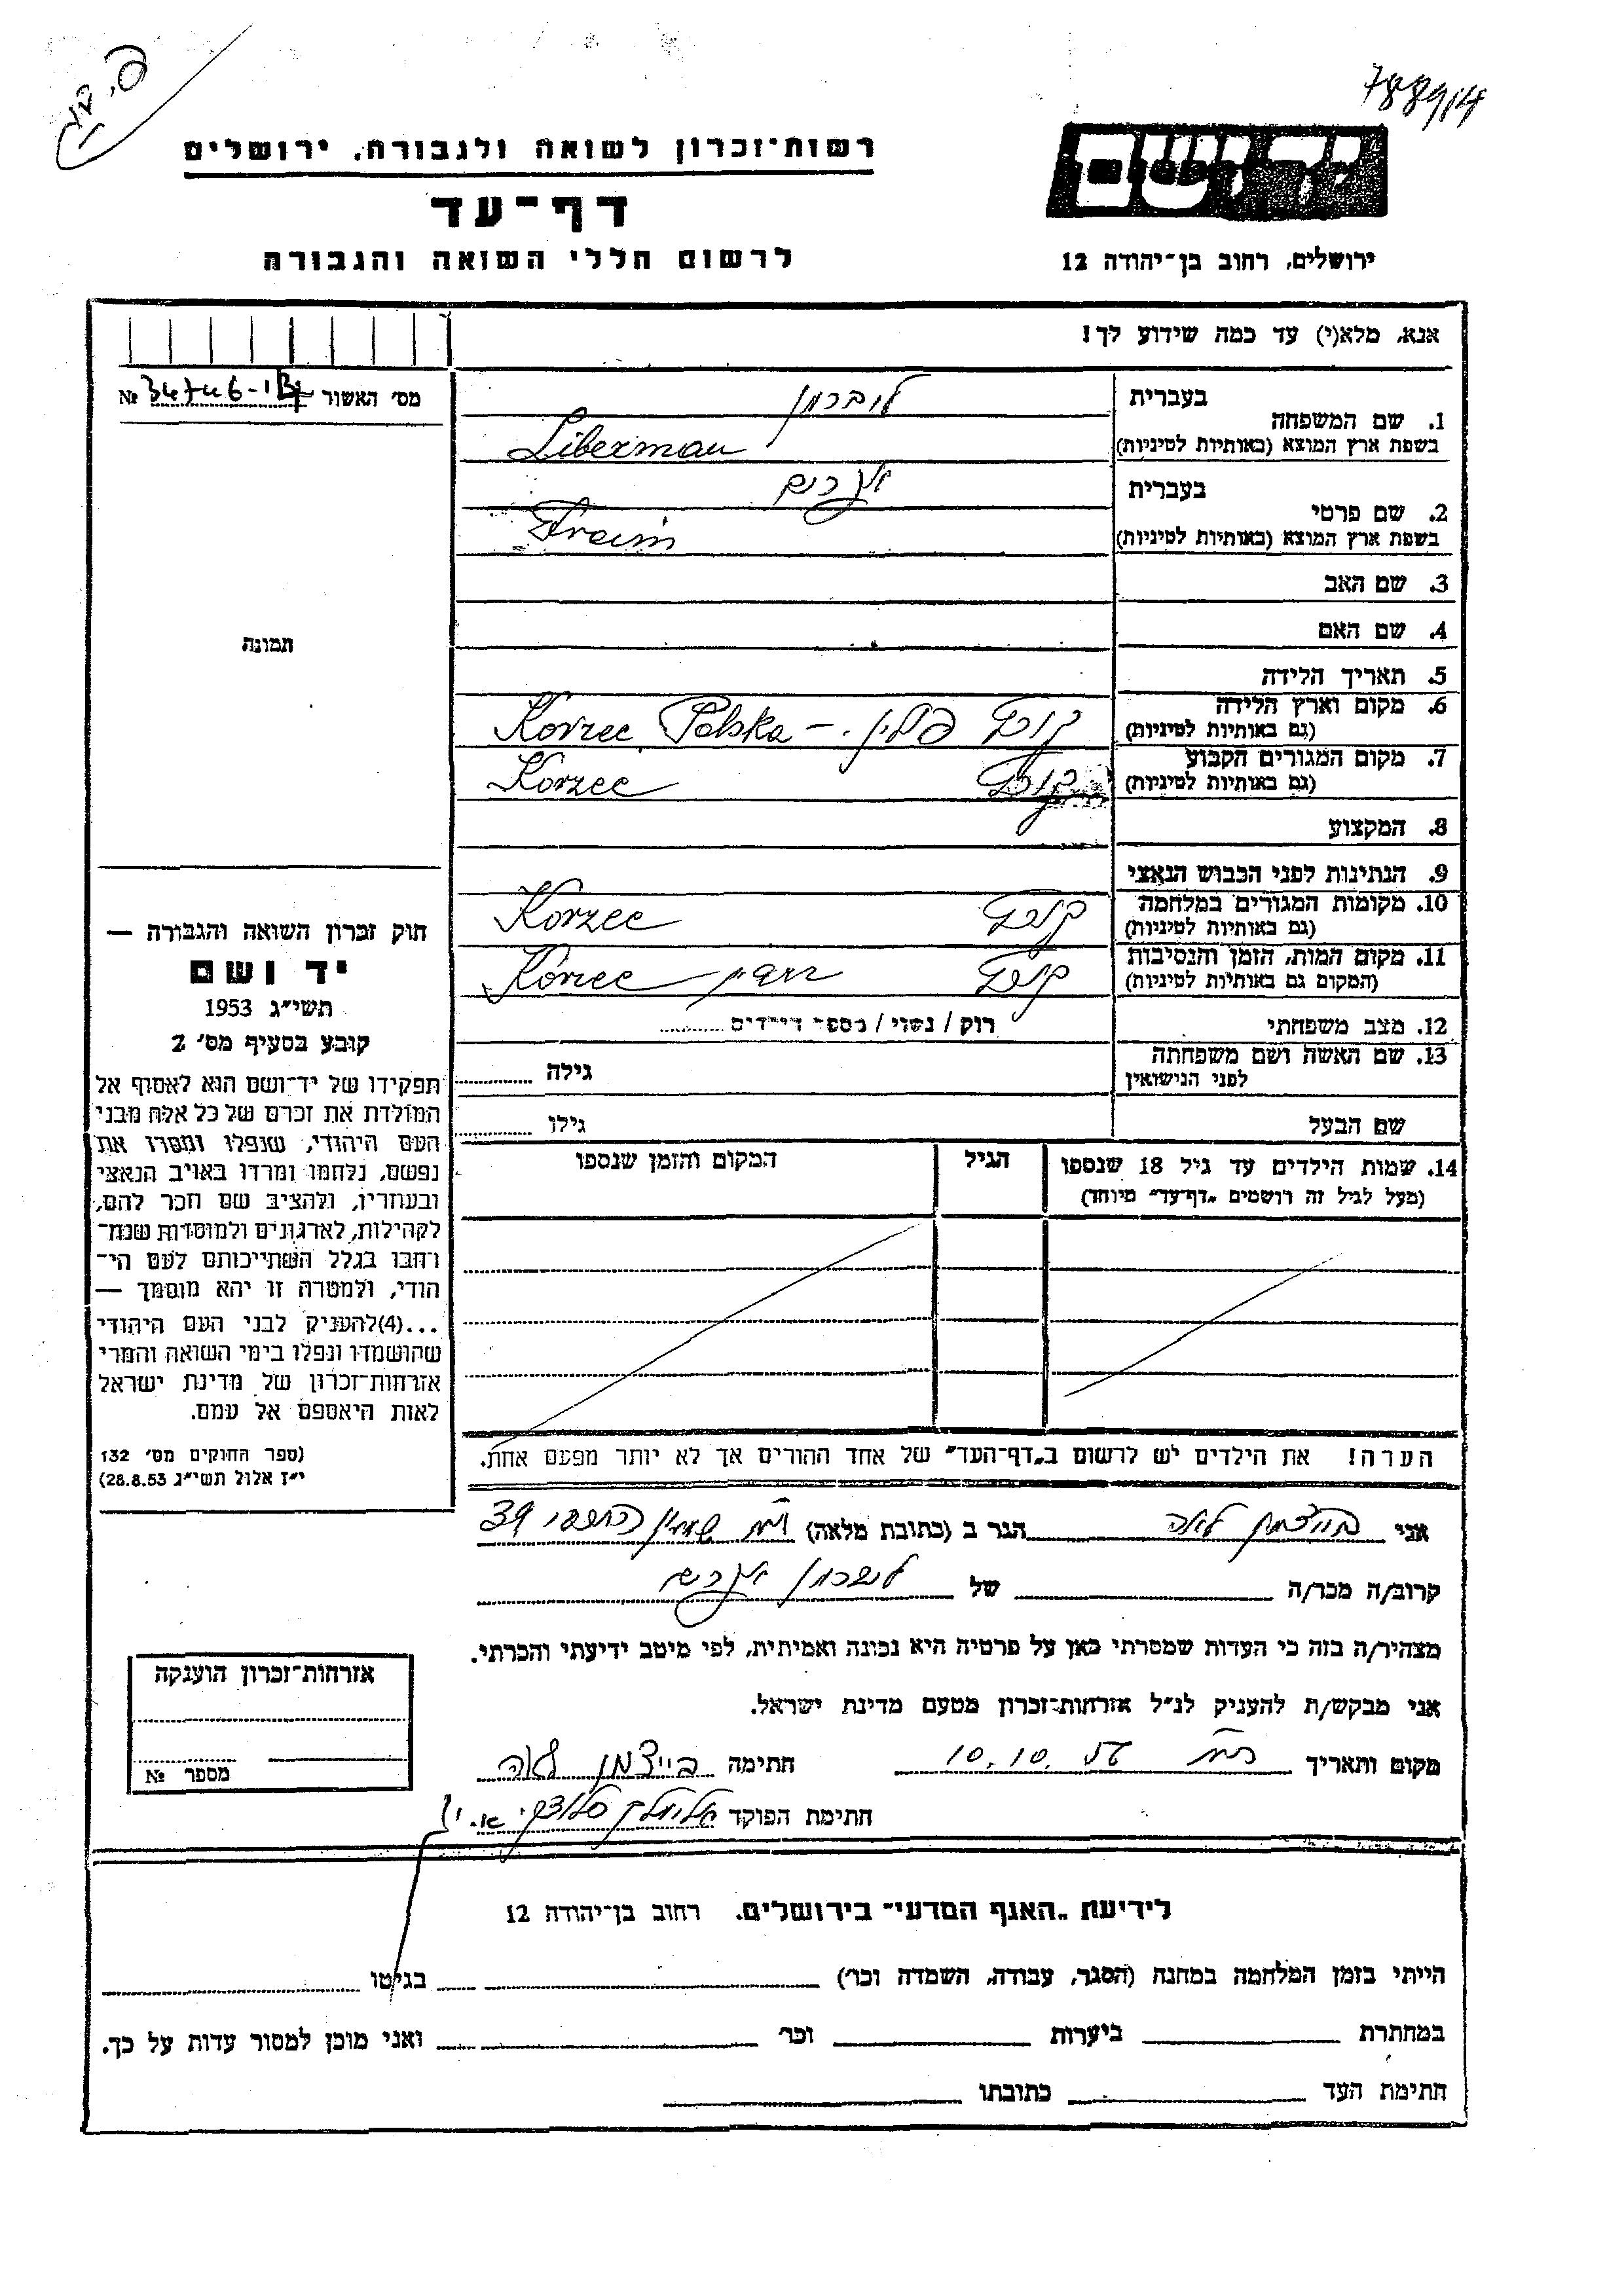 788914
רשות־זכרון לשואה ולגבורה, ירושלים
דף־עד
לרשום חללי השואה והגבורה
יד ושם
ירושלים, רחוב בן־יהודה 12
אנא, מלא(י) עד כמה שידוע לך!
מס׳ האשור №
1. שם המשפחה
בעברית ליברמן
בשפת ארץ המוצא (באותיות לטיניות) Liberman
2. שם פרטי
בעברית אפרים
בשפת ארץ המוצא (באותיות לטיניות) Fraim
3. שם האב
4. שם האם
תמונה
5. תאריך הלידה
6. מקום וארץ הלידה
(גם באותיות לטיניות) קורץ פולין. – Korzec Polska
7. מקום המגורים הקבוע
(גם באותיות לטיניות) קורץ Korzec
8. המקצוע
9. הנתינות לפני הכבוש הנאצי
10. מקומות המגורים במלחמה
(גם באותיות לטיניות) קורץ Korzec
11. מקום המות, הזמן והנסיבות
(המקום גם באותיות לטיניות) קורץ Korzec
12. מצב משפחתי רוק / נשוי / מספר הילדים
13. שם האשה ושם משפחתה
לפני הנישואין גילה
שם הבעל גילו
14. שמות הילדים עד גיל 18 שנספו
(מעל לגיל זה רושמים „דף־עד״ מיוחד)
הגיל
המקום והזמן שנספו
הערה! את הילדים יש לרשום ב„דף־העד״ של אחד ההורים אך לא יותר מפעם אחת.
חוק זכרון השואה והגבורה —
יד ושם
תשי״ג 1953
קובע בסעיף מס׳ 2
תפקידו של יד־ושם הוא לאסוף אל
המולדת את זכרם של כל אלה מבני
העם היהודי, שנפלו ומסרו את
נפשם, נלחמו ומרדו באויב הנאצי
ובעוזריו, ולהציב שם וזכר להם,
לקהילות, לארגונים ולמוסדות שנח־
רבו בגלל השתייכותם לעם הי־
הודי, ולמטרה זו יהא מוסמך —
...(4)להעניק לבני העם היהודי
שהושמדו ונפלו בימי השואה והמרי
אזרחות־זכרון של מדינת ישראל
לאות היאספם אל עמם.
(ספר החוקים מס׳ 132
י״ז אלול תשי״ג 28.8.53)
אני בייצמן לאה הגר ב (כתובת מלאה) 39
קרוב/ה מכר/ה של ליברמן אפרים
מצהיר/ה בזה כי העדות שמסרתי כאן על פרטיה היא נכונה ואמיתית, לפי מיטב ידיעתי והכרתי.
אני מבקש/ת להעניק לנ״ל אזרחות־זכרון מטעם מדינת ישראל.
מקום ותאריך 10.10 חתימה בייצמן לאה
חתימת הפוקד
אזרחות־זכרון הוענקה
מספר №
לידיעת „האגף המדעי״ בירושלים, רחוב בן־יהודה 12
הייתי בזמן המלחמה במחנה (הסגר, עבודה, השמדה וכר׳) בגיטו
במחתרת ביערות וכר׳ ואני מוכן למסור עדות על כך.
חתימת העד כתובתו